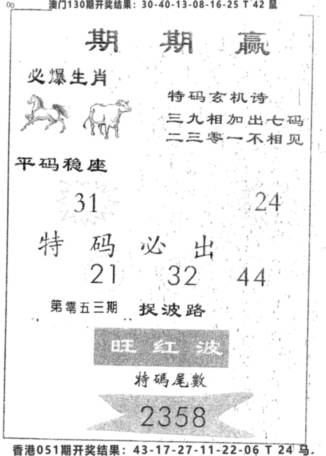 澳门130期开奖结果：30-40-13-08-16-25 T 42 鼠
期 期 赢
必爆生肖
特码玄机诗
三九相加出七码
二三零一不相见
平码稳座
31 24
特码必出
21 32 44
第零五三期 捉波路
旺红波
特碼尾數
2358
香港051期开奖结果：43-17-27-11-22-06 T 24 马.